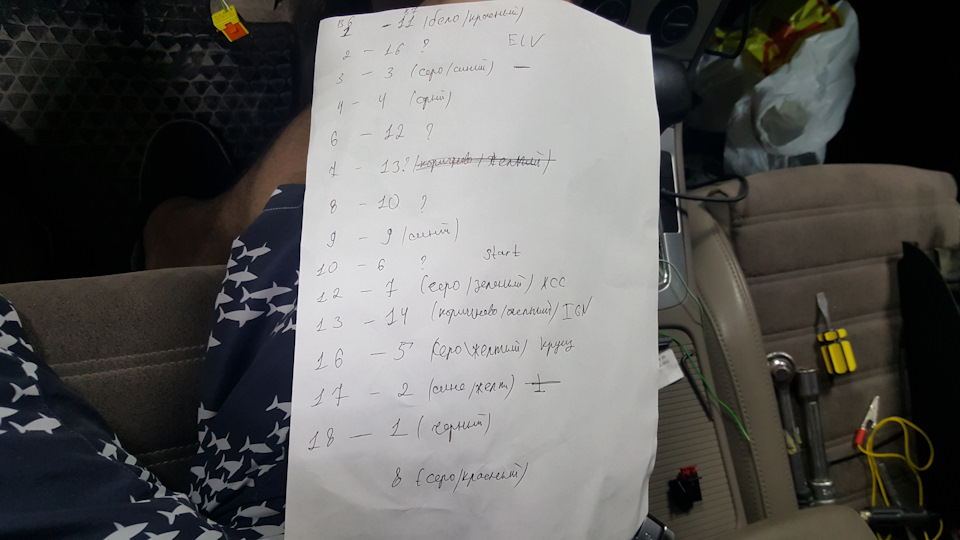 1 - 11 (бело/красный)
2 - 16 ? ELV
3 - 3 (серо/синий) —
4 - 4 (серый)
6 - 12 ?
7 - 13? (коричнево/желтый)
8 - 10 ?
9 - 9 (синий)
10 - 6 ? Start
12 - 7 (серо/зеленый) ACC
13 - 14 (коричнево/белый) IGN
16 - 5 (серо\желтый)
17 - 2 (сине/желт)
18 - 1 (черный)
8 (серо/красный)